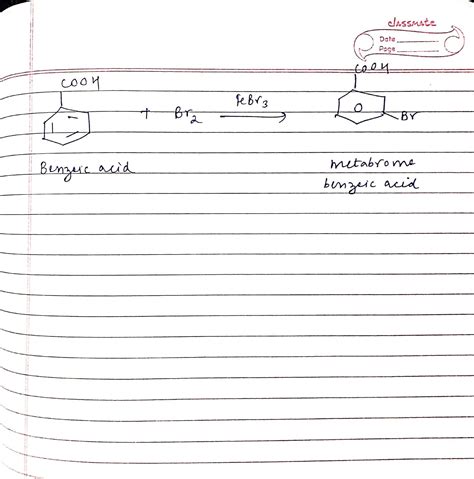 classmate
Date
Page
COOH
COOH
+ Br2
FeBr3
Br
Benzoic acid
metabromo
benzoic acid